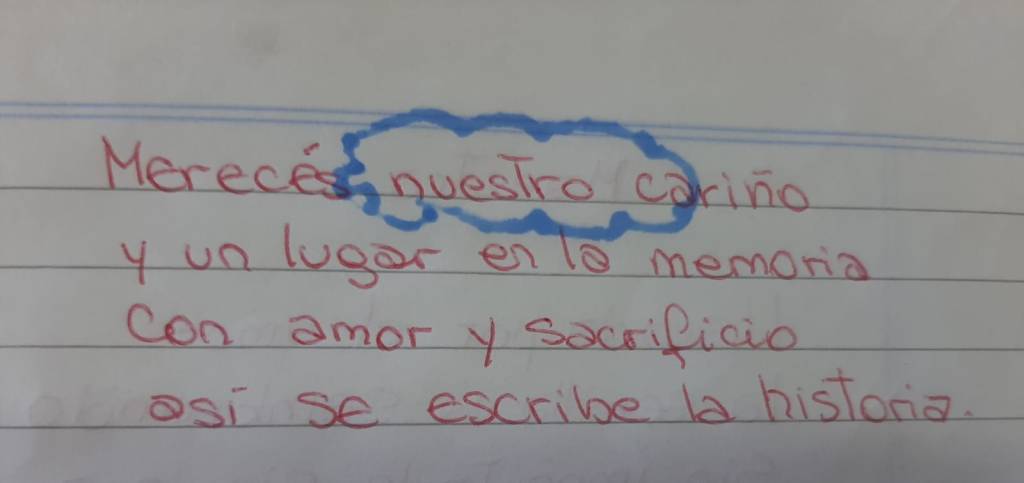 Merecés nuestro cariño
y un lugar en la memoria
Con amor y sacrificio
así se escribe la historia.